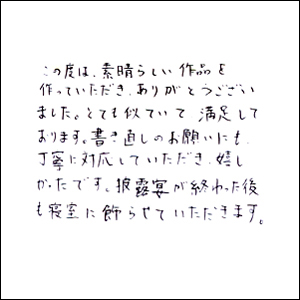 この度は、素晴らしい作品を
作っていただき、ありがとうござい
ました。とても似ていて 満足して
おります。書き直しのお願いにも、
丁寧に対応していただき、嬉し
かったです。披露宴が終わった後
も寝室に飾らせていただきます。